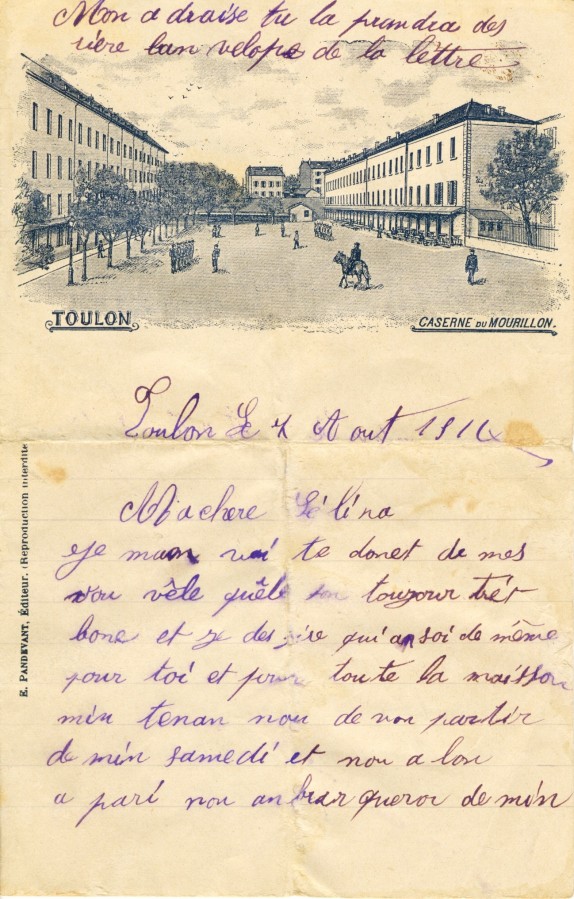 Mon a draise tu la prandra des
riere lan velope de la lêttre
TOULON
CASERNE DU MOURILLON.
E. PANDEVANT, Éditeur. (Reproduction interdite
Toulon Le 7 Aout 1914
Ma chere Célina
Je man vai te donet de mes
nou vèle quêle son toujour trét
bone et je des ire qui an soi de même
pour toi et pour toute la maisson
min tenan nou de von partir
de min samedi et nou a lon
a pari nou an barqueron de min